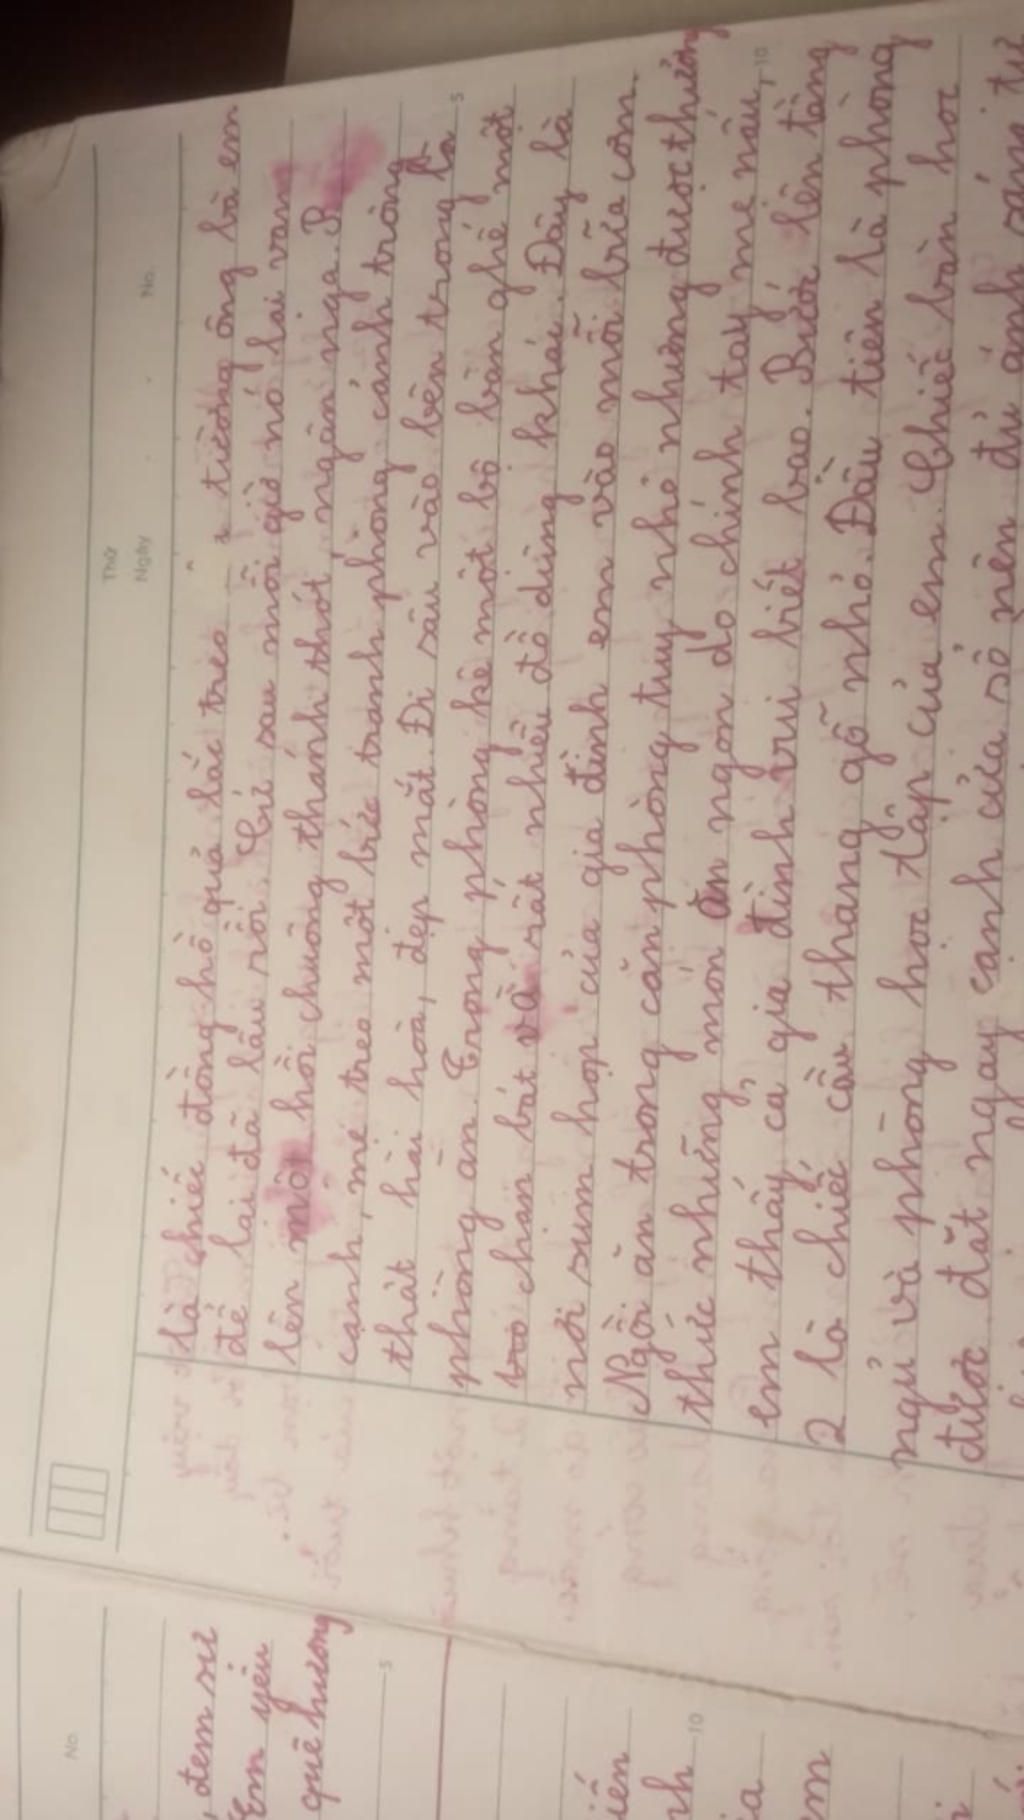 là chiếc đồng hồ quả lắc treo tường ông bà em
để lại đã lâu rồi. Cứ sau mỗi giờ nó lại vang
lên một hồi chuông thánh thót, ngân nga. B
cạnh, mẹ treo một bức tranh phong cảnh trông
thật hài hoà, đẹp mắt. Đi sâu vào bên trong là
phòng ăn. Trong phòng kê một bộ bàn ghế, một
chạn bát và rất nhiều đồ dùng khác. Đây là
nơi sum họp của gia đình em vào mỗi bữa cơm.
Ngồi ăn trong căn phòng tuy nhỏ nhưng được thưởng
thức những món ăn ngon do chính tay mẹ nấu,
em thấy cả gia đình vui biết bao. Bước lên tầng
2 là chiếc cầu thang gỗ nhỏ. Đầu tiên là phòng
ngủ và phòng học tập của em. Chiếc bàn học
được đặt ngay cạnh cửa sổ nên đủ ánh sáng tự
Thứ
Ngày
No.
5
10
No.
đem sử
Em yêu
quê hương
5
10